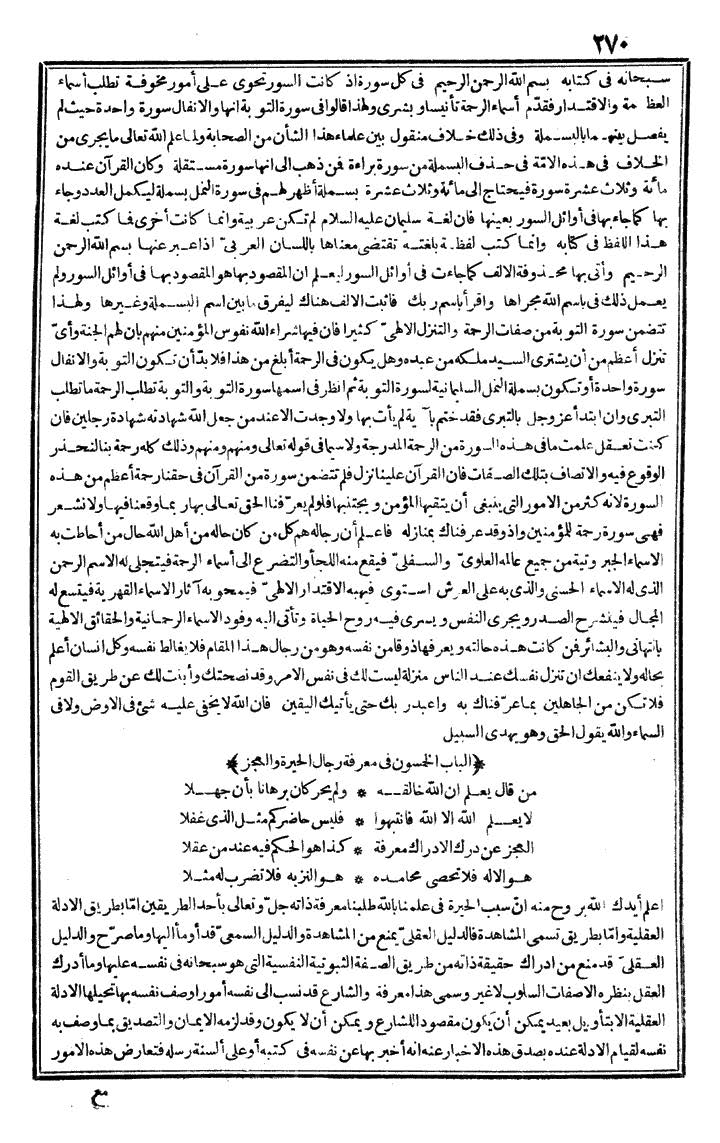 ٢٧٠
سبحانه فى كتابه بسم الله الرحمن الرحيم فى كل سورة اذ كانت السور تحوى على أمور مخوفة تطلب أسماء
العظمة والاقتدار فقدّم أسماء الرحمة تأنيسا وبشرى ولهذا قالوا فى سورة التوبة انها والانفال سورة واحدة حيث لم
يفصل بينهما بالبسملة وفى ذلك خلاف منقول بين علماء هذا الشأن من الصحابة ولما علم الله تعالى ما يجرى من
الخلاف فى هذه الامّة فى حذف البسملة من سورة براءة فمن ذهب الى انها سورة مستقلة وكان القرآن عنده
مائة وثلاث عشرة سورة فيحتاج الى مائة وثلاث عشرة بسملة أظهر لهم فى سورة النمل بسملة ليكمل العدد وجاء
بها كما جاء بها فى أوائل السور بعينها فان لغة سليمان عليه السلام لم تكن عربية وانما كانت أخرى فما كتب لغة
هذا اللفظ فى كتابه وانما كتب لفظة بلغته تقتضى معناها باللسان العربىّ اذا عبر عنها بسم الله الرحمن
الرحيم وأتى بها محذوفة الالف كما جاءت فى أوائل السور ليعلم ان المقصود بها هو المقصود بها فى أوائل السور ولم
يعمل ذلك فى باسم الله مجراها واقرأ باسم ربك فاثبت الالف هناك ليفرق ما بين اسم البسملة وغيرها ولهذا
تتضمن سورة التوبة من صفات الرحمة والتنزل الالهىّ كثيرا فان فيها شراء الله نفوس المؤمنين منهم بان لهم الجنة وأىّ
تنزل أعظم من أن يشترى السيد ملكه من عبده وهل يكون فى الرحمة أبلغ من هذا فلا بدّ أن تكون التوبة والانفال
سورة واحدة أو تكون بسملة النمل السليمانية لسورة التوبة ثم انظر فى اسمها سورة التوبة والتوبة تطلب الرحمة ما تطلب
التبرى وان ابتدأ عز وجل بالتبرى فقد ختم بآية لم يأت بها ولا وجدت الا عند من جعل الله شهادته شهادة رجلين فان
كنت تعقل علمت ما فى هذه السورة من الرحمة المدرجة ولا سيما فى قوله تعالى ومنهم ومنهم وذلك كله رحمة بنا لنحذر
الوقوع فيه والاتصاف بتلك الصفات فان القرآن علينا نزل فلم تتضمن سورة من القرآن فى حقنا رحمة أعظم من هذه
السورة لانه كثر من الامور التى ينبغى أن يتقيها المؤمن ويجتنبها فلو لم يعرّفنا الحق تعالى بها ربما وقعنا فيها ولا نشعر
فهى سورة رحمة للمؤمنين واذ وقد عرفناك بمنازله فاعلم أن رجاله هم كل من كان حاله من أهل الله حال من أحاطت به
الاسماء الجبروتية من جميع عالمه العلوىّ والسفلىّ فيقع منه اللجأ والتضرع الى أسماء الرحمة فيتجلى له الاسم الرحمن
الذى له الاسماء الحسنى والذى به على العرش استوى فيهبه الاقتدار الالهىّ فيمحو به آثار الاسماء القهرية فيتسع له
المجال فينشرح الصدر ويجرى النفس ويسرى فيه روح الحياة وتأتى اليه وفود الاسماء الرحمانية والحقائق الالهية
بالتهانى والبشائر فمن كانت هذه حالته ويعرفها ذوقا من نفسه وهو من رجال هذا المقام فلا يغالط نفسه وكل انسان أعلم
بحاله ولا ينفعك ان تنزل نفسك عند الناس منزلة ليست لك فى نفس الامر وقد نصحتك وأبنت لك عن طريق القوم
فلا تكن من الجاهلين بما عرّفناك به واعبد ربك حتى يأتيك اليقين فان الله لا يخفى عليه شئ فى الارض ولا فى
السماء والله يقول الحق وهو يهدى السبيل
﴿الباب الخمسون فى معرفة رجال الحيرة والعجز﴾
من قال يعلم ان الله خالقه * ولم يحر كان برهانا بأن جهلا
لا يعلم الله الا الله فانتبهوا * فليس حاضركم مثل الذى غفلا
العجز عن درك الادراك معرفة * كذا هو الحكم فيه عند من عقلا
هو الاله فلا تحصى محامده * هو النزيه فلا تضرب له مثلا
اعلم أيدك الله بروح منه انّ سبب الحيرة فى علمنا بالله طلبنا معرفة ذاته جلّ وتعالى بأحد الطريقين امّا بطريق الادلة
العقلية وامّا بطريق تسمى المشاهدة فالدليل العقلىّ يمنع من المشاهدة والدليل السمعىّ قد أومأ اليها وما صرّح والدليل
العقلىّ قد منع من ادراك حقيقة ذاته من طريق الصفة الثبوتية النفسية التى هو سبحانه فى نفسه عليها وما أدرك
العقل بنظره الا صفات السلوب لا غير وسمى هذا معرفة والشارع قد نسب الى نفسه أمورا وصف نفسه بها تحيلها الادلة
العقلية الا بتأويل بعيد يمكن أن يكون مقصودا للشارع ويمكن أن لا يكون وقد لزمه الايمان والتصديق بما وصف به
نفسه لقيام الادلة عنده بصدق هذه الاخبار عنه انه أخبر بها عن نفسه فى كتبه أو على ألسنة رسله فتعارض هذه الامور
مع